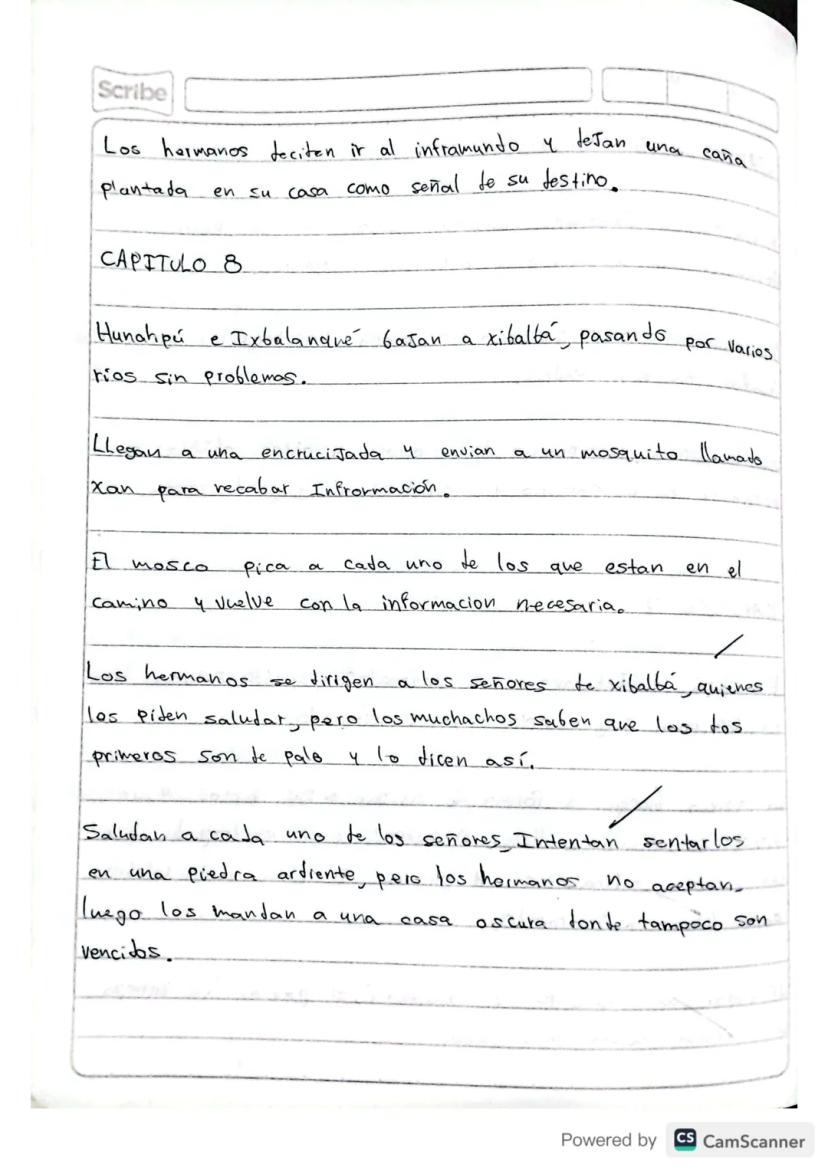 Scribe
Los hermanos deciden ir al inframundo y dejan una caña
plantada en su casa como señal de su destino.
CAPITULO 8
Hunahpú e Ixbalanqué bajan a xibalbá, pasando por varios
rios sin problemas.
LLegan a una encrucijada y envian a un mosquito llamado
Xan para recabar Infrormación.
El mosco pica a cada uno de los que estan en el
camino y vuelve con la informacion necesaria.
Los hermanos se dirigen a los señores de xibalbá, quienes
los piden saludar, pero los muchachos saben que los dos
primeros son de palo y lo dicen así.
Saludan a cada uno de los señores, Intentan sentarlos
en una piedra ardiente, pero los hermanos no aceptan,
luego los mandan a una casa oscura donde tampoco son
vencidos.
Powered by CS CamScanner